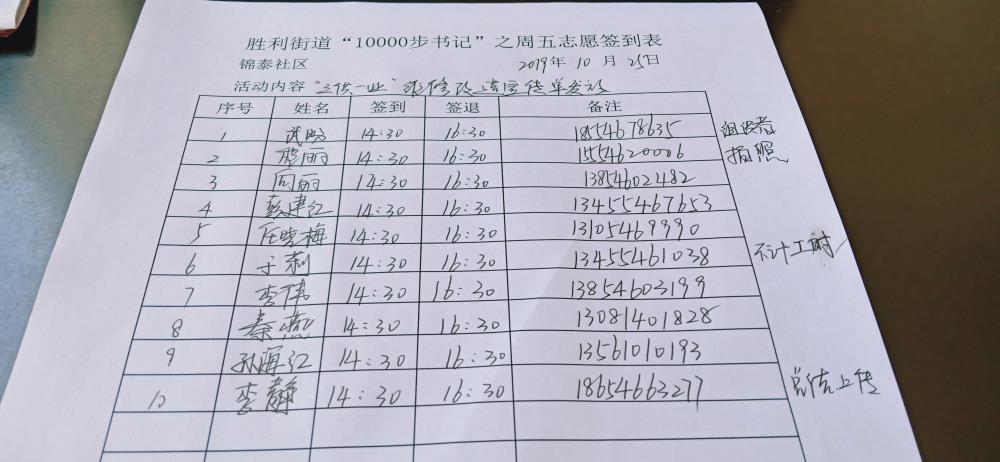 胜利街道“10000步书记”之周五志愿签到表
锦泰社区 2019年 10 月 25日
活动内容 “三供一业”维修改造宣传单发放
序号 姓名 签到 签退 备注
1 武 14:30 16:30 18554678635 组织者
2 丽 14:30 16:30 15554620006 拍照
3 向丽 14:30 16:30 13854602482
4 彭建红 14:30 16:30 13455467653
5 任晓梅 14:30 16:30 13105469990
6 于莉 14:30 16:30 13455461038 不计工时
7 李伟 14:30 16:30 13854603199
8 秦燕 14:30 16:30 13081401828
9 孙海红 14:30 16:30 13561010193
10 李静 14:30 16:30 18654663277 总结上传